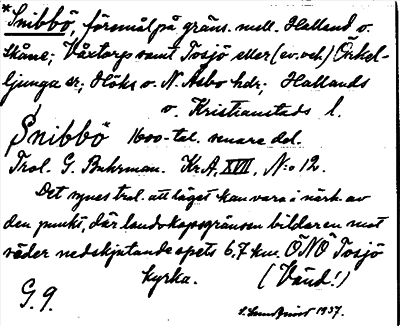 *Snibbö, föremål på gräns. mell. Halland o.
Skåne; Våxtorp samt Tosjö eller (ev. et.) Örkel-
ljunga sr; Höks o. N. Åsbo hdr; Hallands
o. Kristianstads l.
Snibbö 1600-tal. senare del.
Trol. G. Buhrman. Kr.A, XVII, N:o 12.
Det synes trol. att läget kan vara i närh. av
den punkt, där landskapsgränsen bildar en mot
väder nedskjutande spets 6,7 km. ÖNÖ Tosjö
kyrka. (Vänd!)
G. 9. 1937.